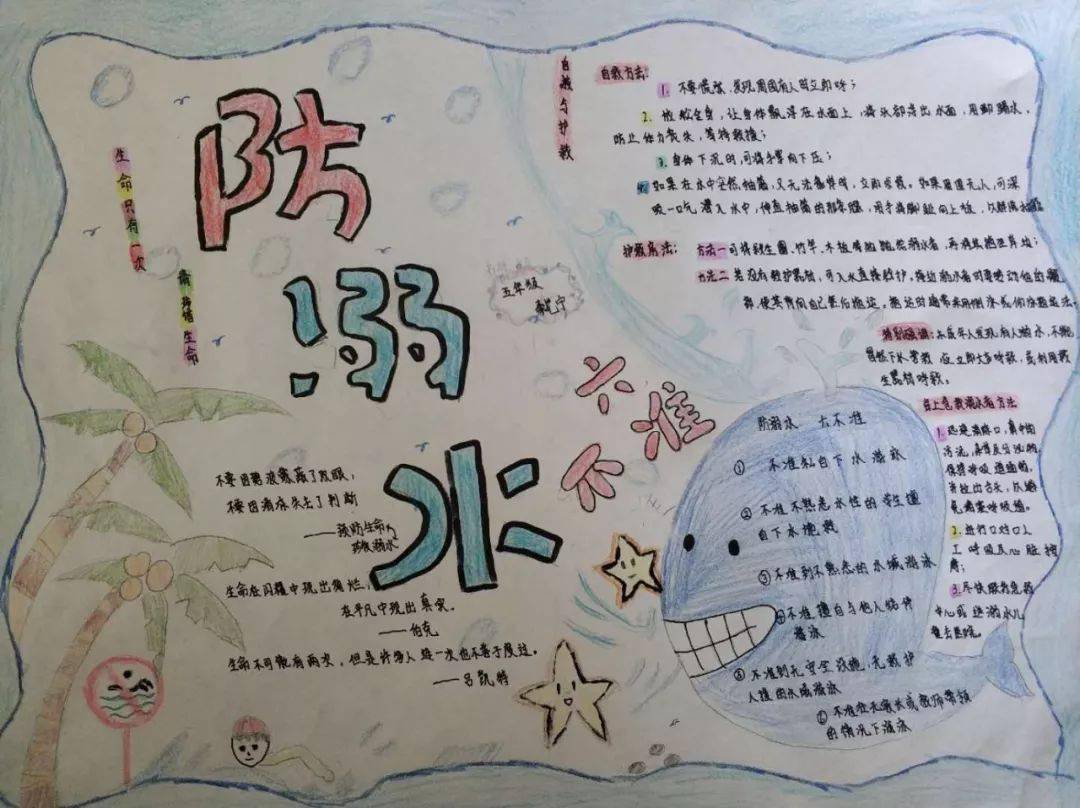 防
溺
水
六
不
准
生命只有一次
生命
五年级
自救与护救
自救方法:
1. 不要慌张,发现周围有人时立即呼;
2. 放松全身,让身体飘浮在水面上,将头部浮出水面,用脚踢水,
防止体力丧失,等待救援;
3. 身体下沉时,可将手掌向下压;
4. 如果在水中突然抽筋,又无法靠岸时,立即求救。如果周围无人,可深
吸一口气潜入水中,伸直抽筋的那条腿,用手将脚趾向上扳,以解除抽筋
护救方法:
方法一 可将救生圈、竹竿、木板等抛给溺水者,再将其拖至岸边;
方法二 若没有救护器材,可入水直接救护,接近溺水者时要转动他的髋
部,使其背向自己然后拖运。拖运时通常采用侧泳或仰泳拖运法。
特别强调:未成年人发现有人溺水,不能
冒然下水营救,应立即大声呼救,或利用救
生器材呼救。
岸上急救溺水者方法
1. 迅速清除口、鼻中的
污泥,
保持呼吸道通畅,
并拉出舌头,以避
免堵塞呼吸道。
2. 进行口对口人
工呼吸及心脏按
摩;
3. 尽快联系急救
中心或送溺水儿
童去医院。
防溺水 六不准
① 不准私自下水游泳
② 不准不熟悉水性的学生擅
自下水施救
③ 不准到不熟悉的水域游泳
④ 不准擅自与他人结伴
游泳
⑤ 不准到无安全设施、无救护
人援的水域游泳
⑥ 不准在无家长或教师带领
的情况下游泳
不要因碧波蒙蔽了双眼,
不要因清凉失去了判断
——预防生命
溺水
生命在闪耀中现出绚烂,
在平凡中现出真实。
——伯克
生命不可能有两次,但是许多人连一次也不善于度过。
——吕凯特